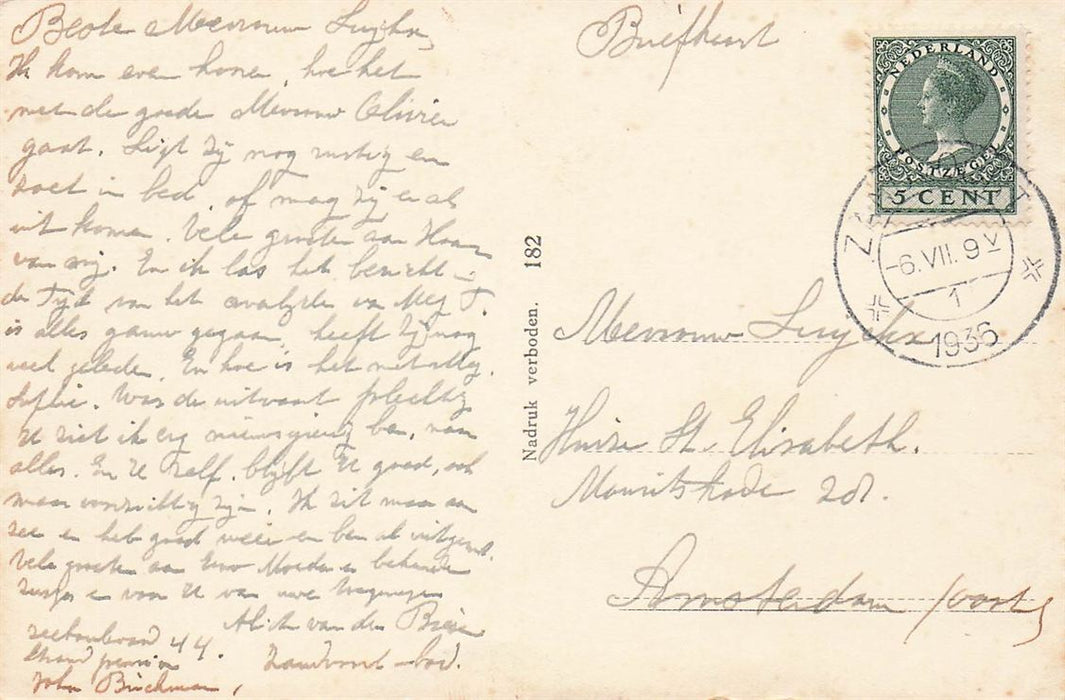 Beste Mevrouw Luyckx,
Ik kom even horen, hoe het
met de goede Mevrouw Olivier
gaat. Ligt zij nog rustig en
zoet in bed, of mag zij er al
uit komen. Vele groeten aan Haar
van mij. En ik las het bericht in
de Tijd van het overlijden van Mej. T.
is alles gauw gegaan, heeft zij nog
veel geleden. En hoe is het met
Was de uitvaart plechtig
U ziet ik erg nieuwsgierig ben, naar
alles. En U zelf, blijft U goed, ook
maar voorzichtig zijn. Ik zit maar aan
zee en heb goed weer en ben al
Vele groeten aan Eerw Moeder en bekende
zusjes en voor U van uwe
van den
zeeboulevard 44. Zandvoort - bad.
Strand pension
John
Briefkaart
NEDERLAND
POSTZEGEL
5 CENT
-6.VII.9 V
1
1936
Nadruk verboden. 182
Mevrouw Luyckx
Huize St. Elisabeth.
Mauritskade 28.
Amsterdam (oost)